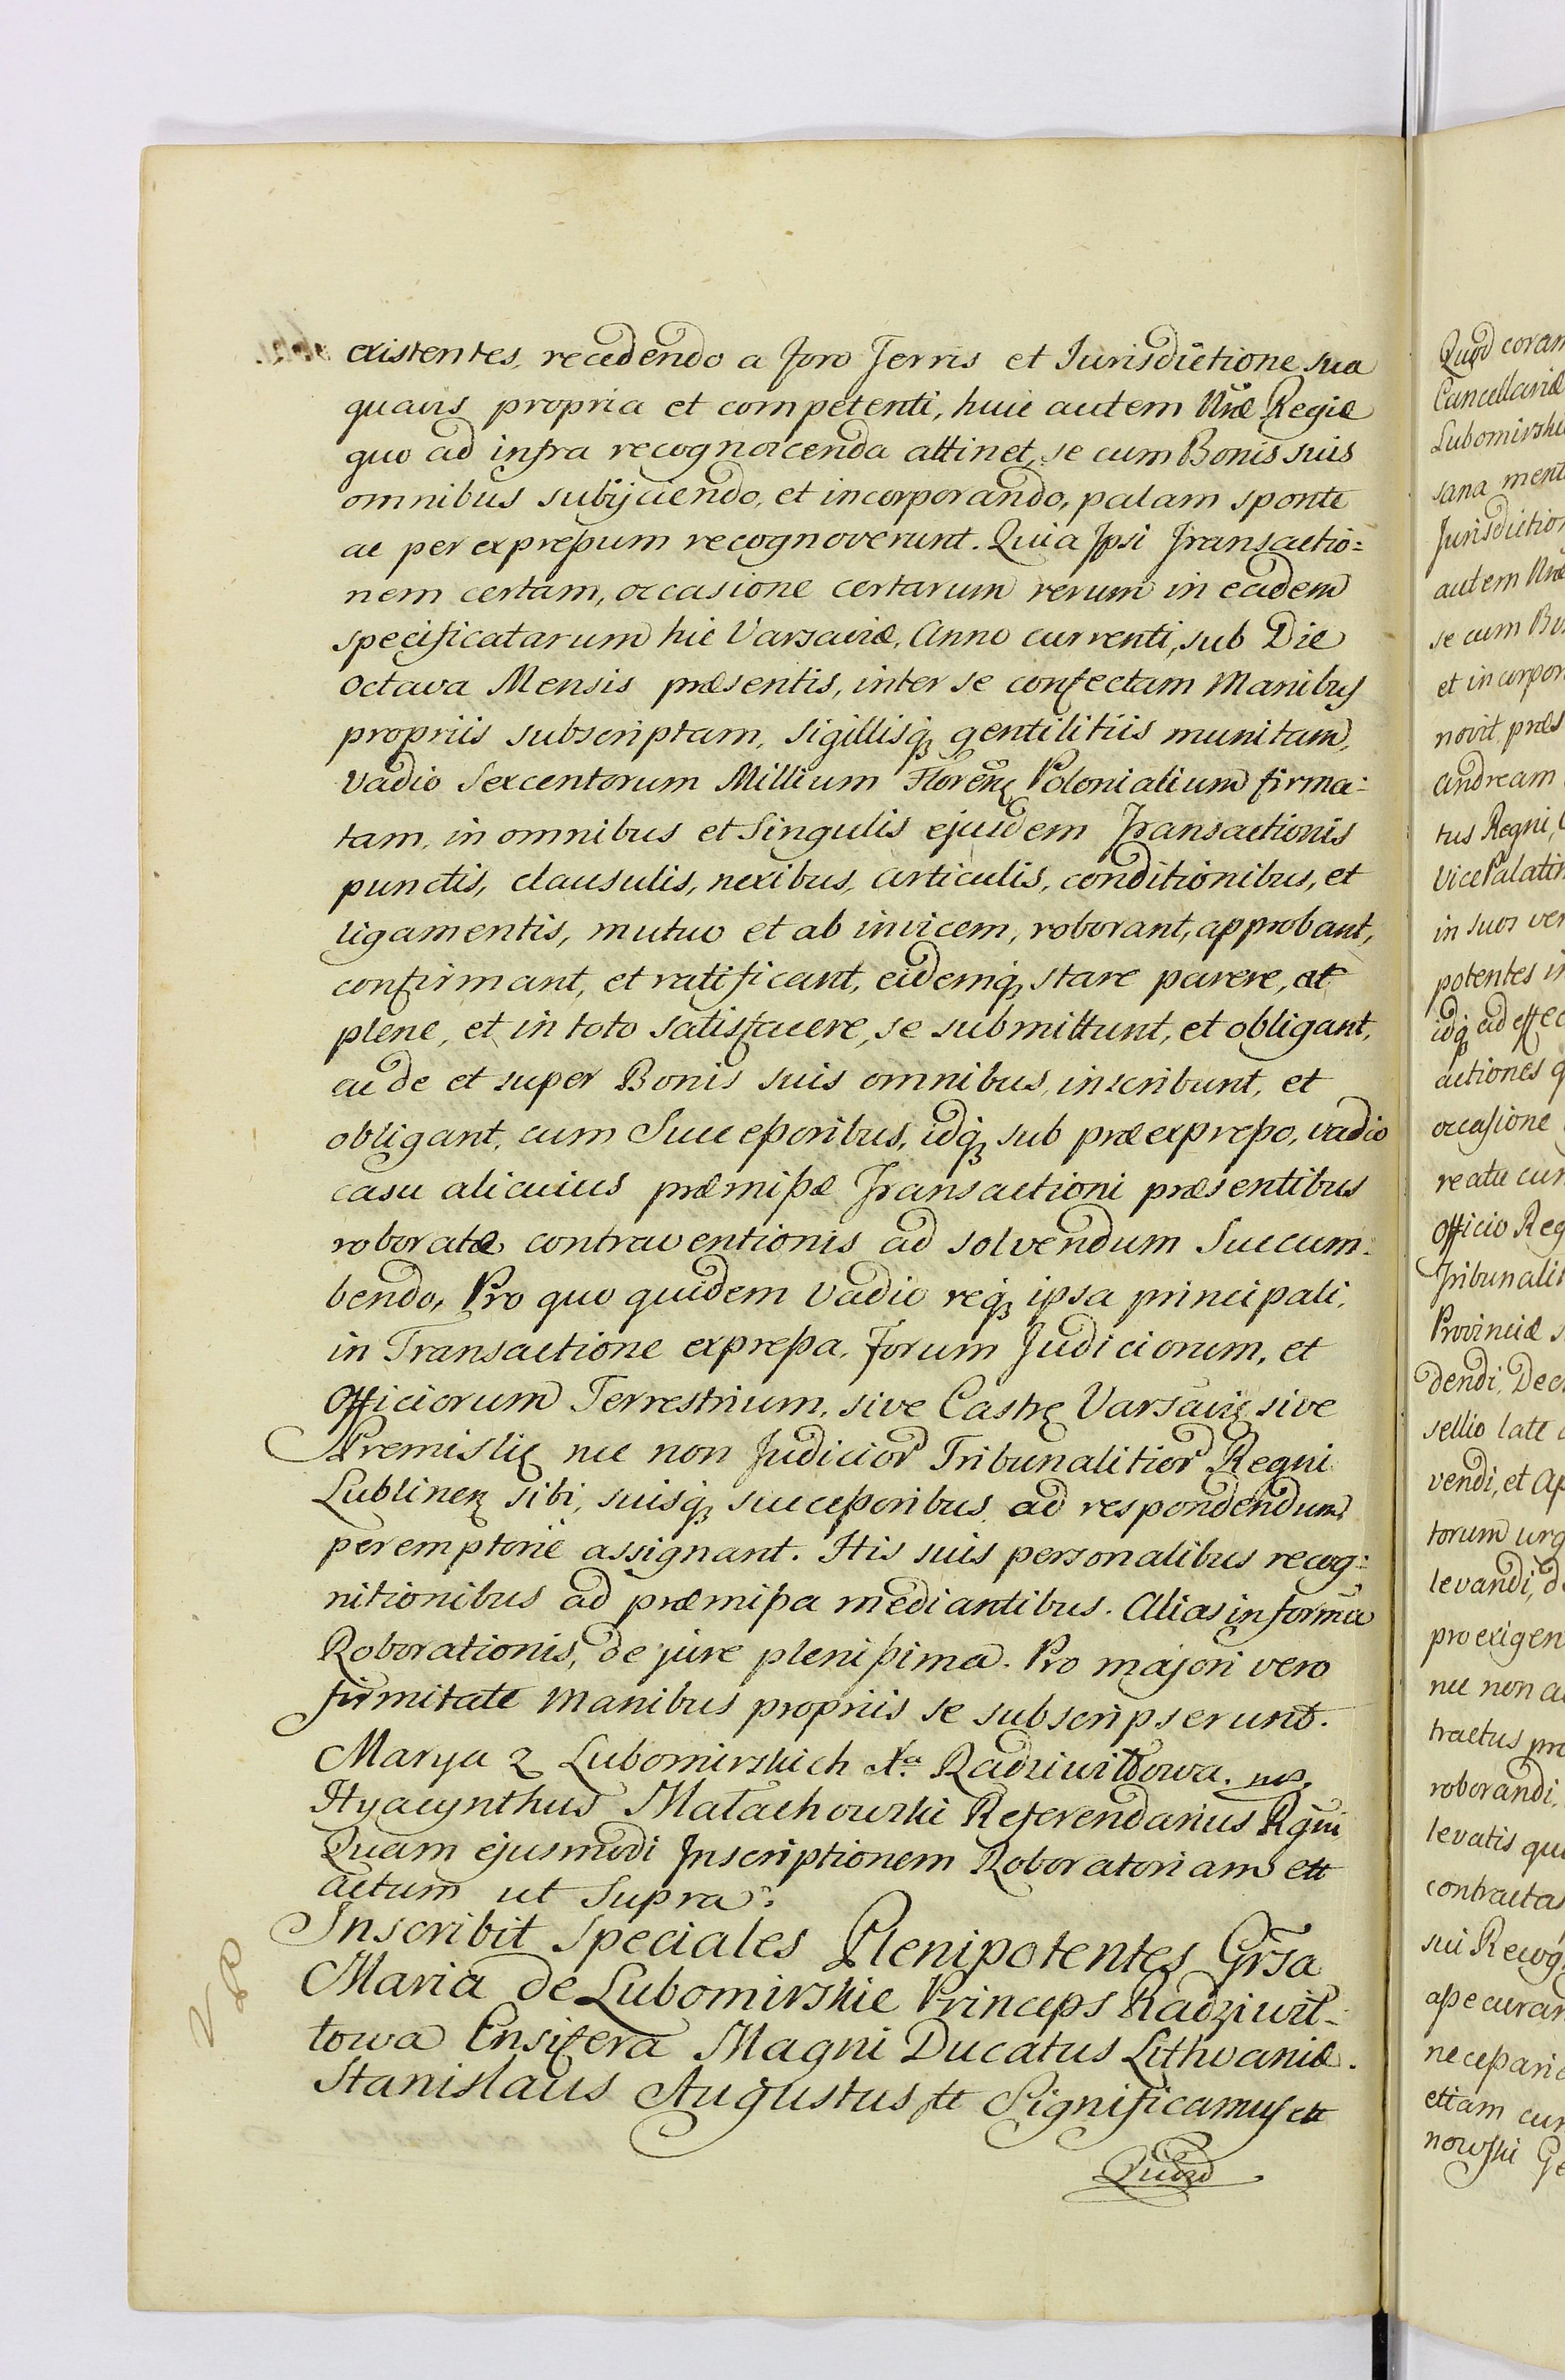 existentes, recedendo a foro Terris et Jurisdictione sua
quavis propria et competenti, huic autem Nræ Regiæ
quo ad infra recognoscenda attinet, se cum Bonis suis
omnibus subijciendo, et incorporando, palam sponte
ac per expressum recognoverunt. Quia Ipsi Transactio:
nem certam, occasione certarum rerum in eadem
specificatarum hic Varsaviæ, Anno currenti, sub Die
Octava Mensis præsentis, inter se confectam Manibus
propriis subscriptam, sigillisq gentilitiis munitam,
vadio Sexcentorum Millium Floren Polonialium firma:
tam, in omnibus et Singulis ejusdem Transactionis
punctis, clausulis, nexibus, articulis, conditionibus, et
ligamentis, mutuo et ab invicem, roborant, approbant,
confirmant, et ratificant, eidemq stare parere, ac
plene, et in toto satisfacere, se submittunt, et obligant,
ac de et super Bonis suis omnibus, inscribunt, et
obligant, cum Successoribus, idq sub præexpresso, vadio
casu alicuius præmissæ Transactioni præsentibus
roboratæ contraventionis ad solvendum Succum:
bendo, Pro quo quidem vadio req ipsa principali,
in Transactione expressa, forum Judiciorum, et
Officiorum Terrestrium, sive Castr Varsavię sive
Premislię nec non Judicior Tribunalitior Regni
Lublinen sibi, suisq successoribus ad respondendum
peremptorie assignant. Htis suis personalibus recog:
nitionibus ad præmissa mediantibus. Alias in forma
Roborationis, de jure plenissima. Pro majori vero
firmitate Manibus propriis se subscripserunt.
Marya z Lubomirskich Xa. Radziwiłłowa. mp.
Hyacynthus Małachowski Referendarius Rgni
Quam ejusmodi Inscriptionem Roboratoriam ett
actum ut Supra.
Inscribit Speciales Plenipotentes Grsa
Maria de Lubomirskie Princeps Radziwił-
łowa Ensifera Magni Ducatus Lithvaniæ.
Stanislaus Augustus ett Significamus ett
Quod
VP
Quod coram
Cancellariæ
Lubomirski
sana ment
Jurisdiction
autem Nræ
se cum Bo
et incorpor
novit præs
Andream
tus Regni,
VicePalatin
in suos ver
potentes in
idq ad effec
actiones q
occasione
reatu cum
Officio Reg
Tribunalit
Provinciæ s
dendi, Dec
sellio late
vendi, et Ap
torum urg
levandi, d
pro exigen
nec non a
tractus pro
roborandi,
levatis qu
contracta
sui Recog
assecurar
necessari
etiam cum
nowski Ge